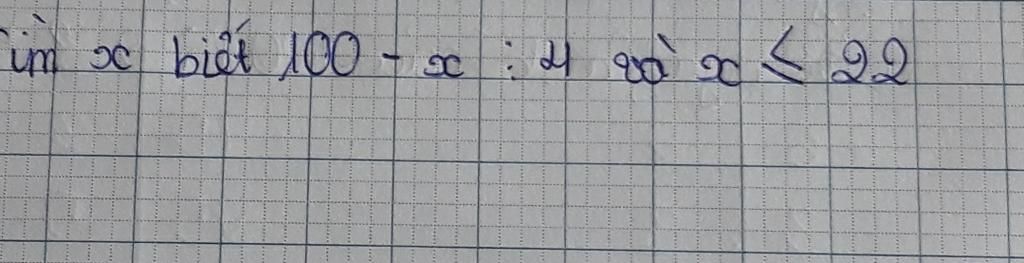 ìm x biết 100 - x : 4 và x ≤ 22